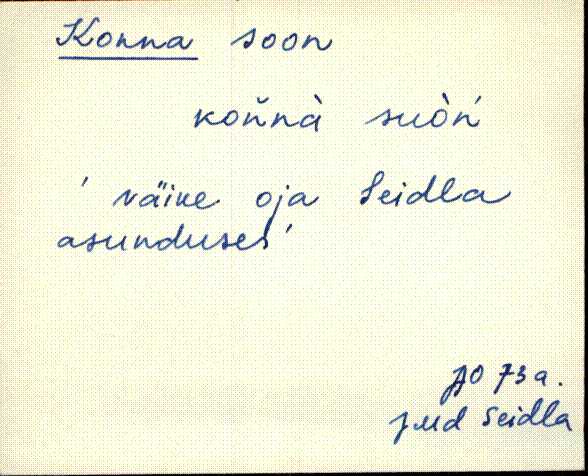 Konna soon
koňnà suòń
' väike oja Seidla
asunduses'
AO 73a.
JMd Seidla